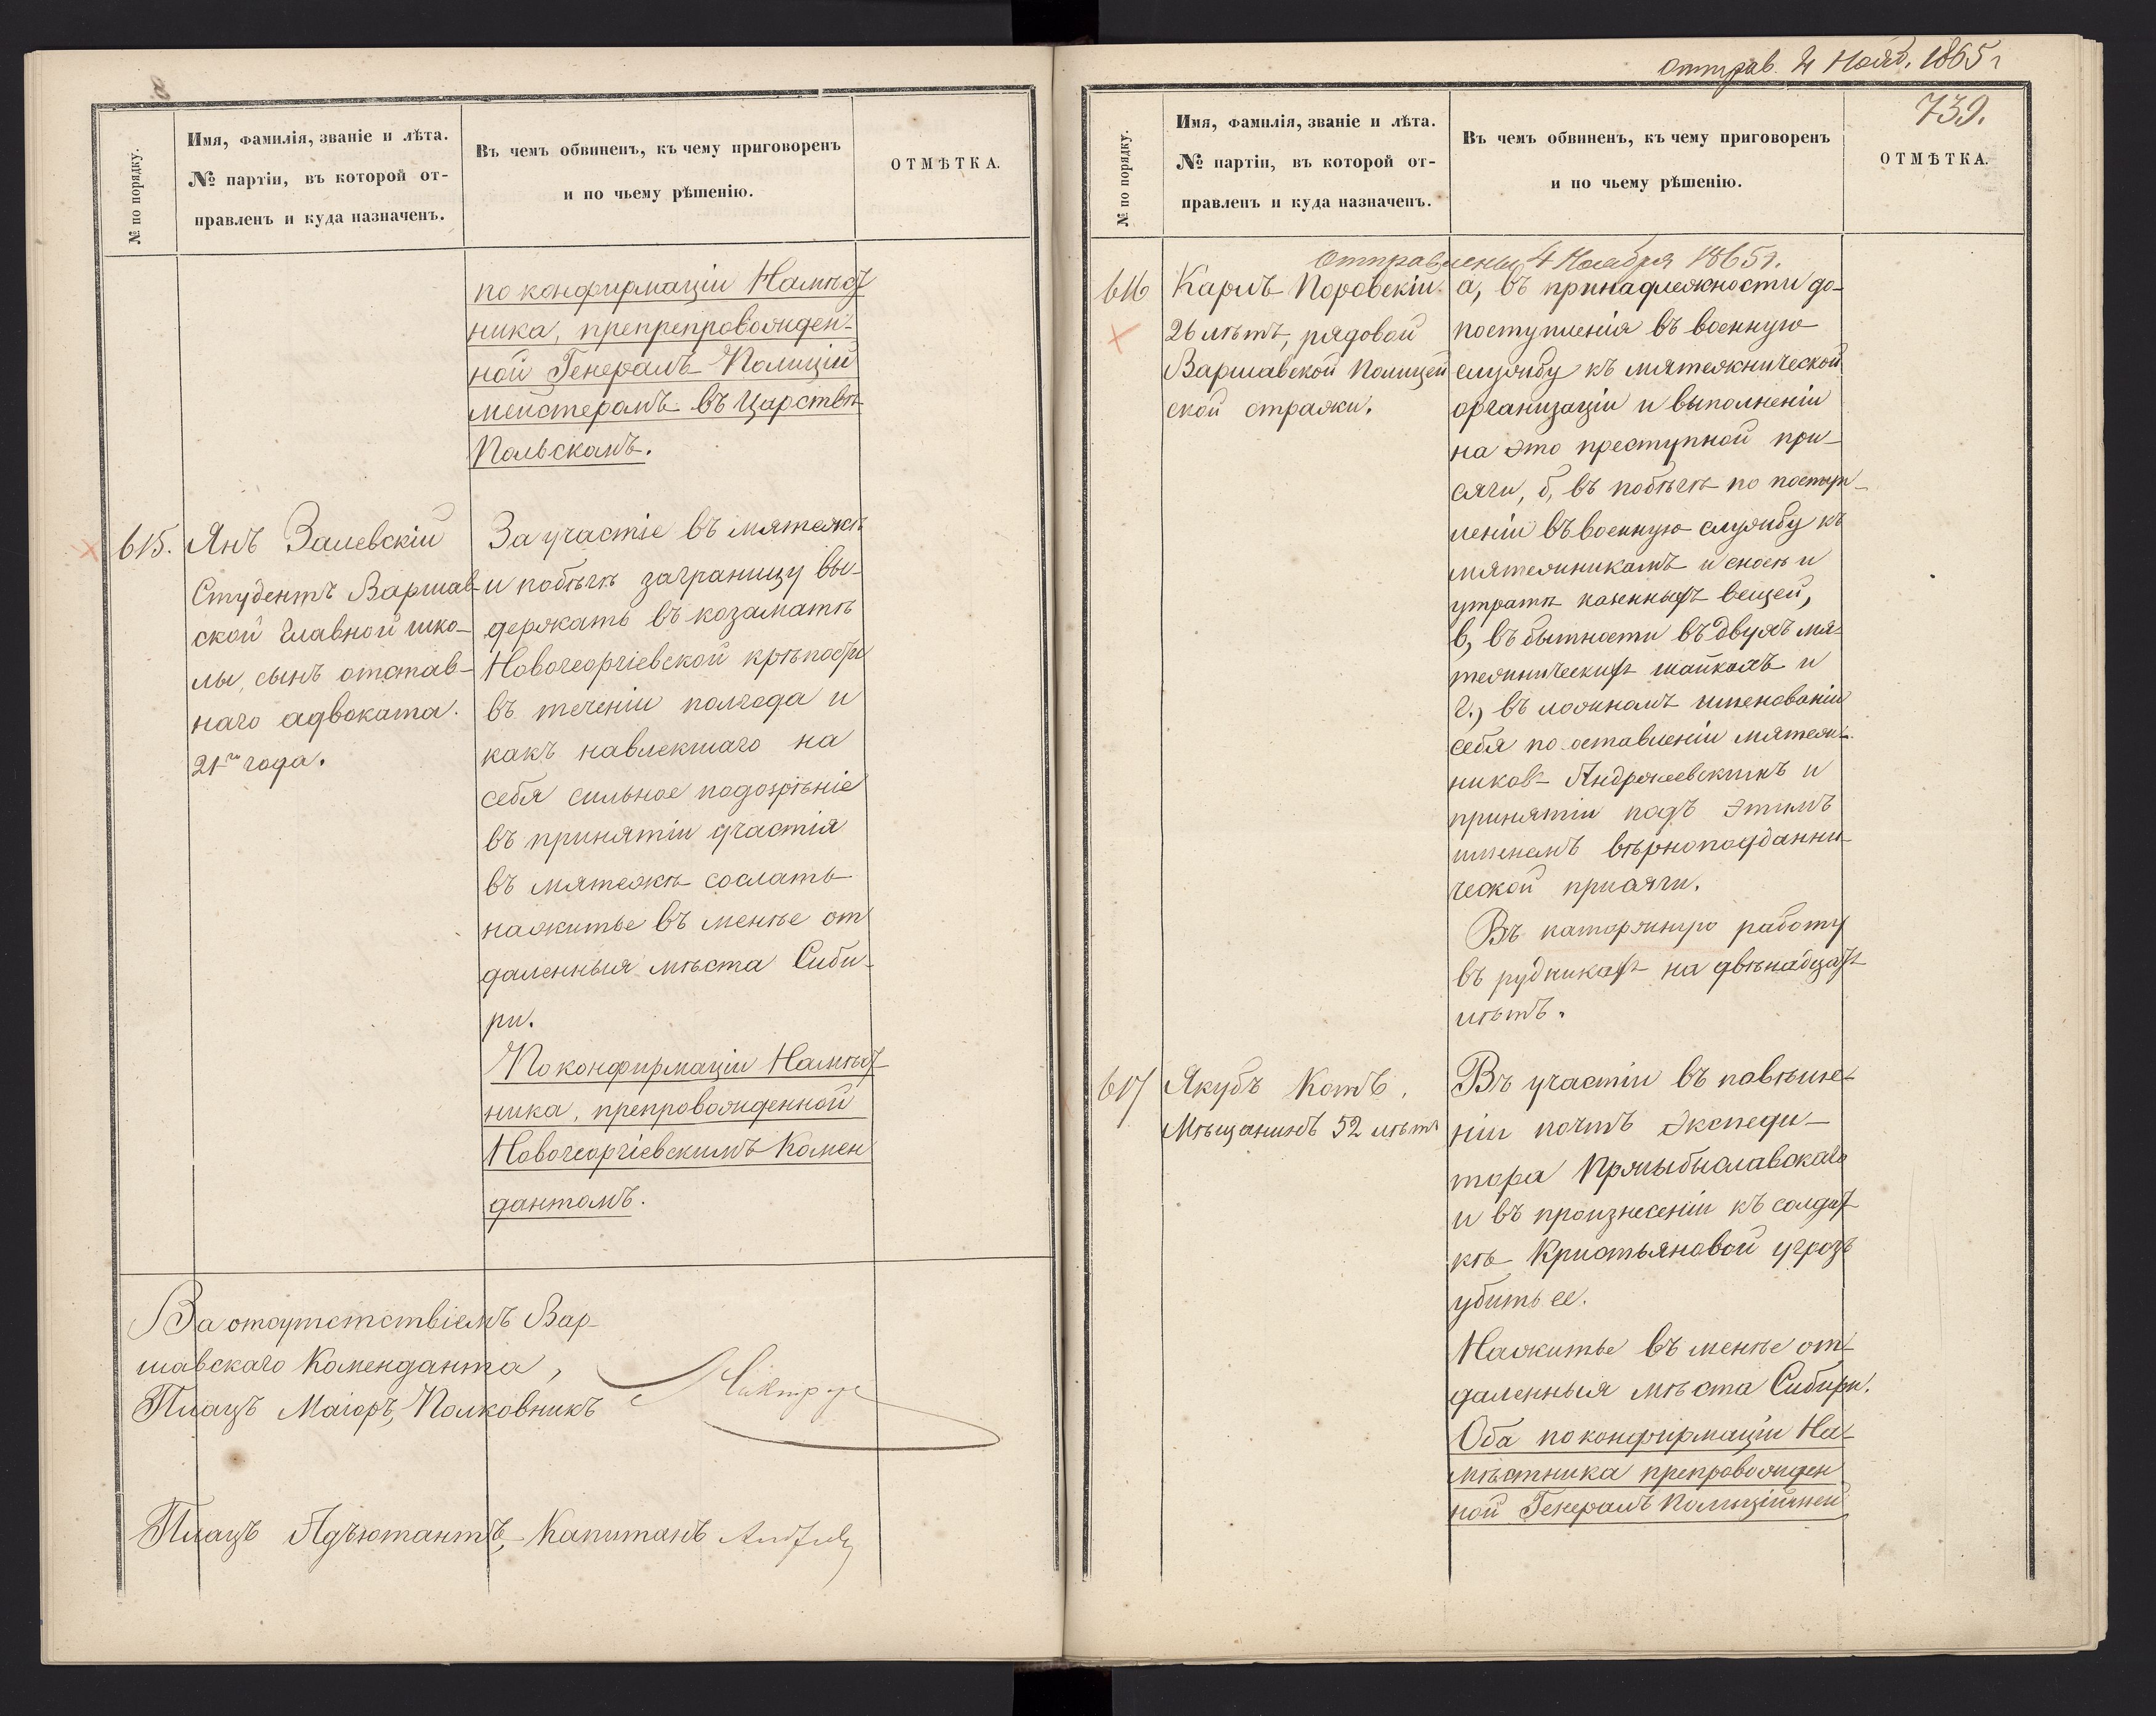 8
№ по порядку.
Имя, фамилія, званіе и лѣта.
№ партіи, въ которой от-
правленъ и куда назначенъ.
Въ чемъ обвиненъ, къ чему приговоренъ
и по чьему рѣшенію.
ОТМѢТКА.
по конфирмаціи Намѣст
ника, препрепровожден-
ной Генералъ-Полиціи
мейстеромъ въ Царствѣ
Польскомъ.
615. Янъ Залевскій
Студентъ Варшав-
ской Главной шко-
лы, сынъ отстав-
наго адвоката.
21го года.
За участіе въ мятежѣ
и побѣгѣ заграницу вы-
держать въ козаматѣ
Новогеоргіевской крѣпости
въ теченіи полгода и
какъ навлекшаго на
себя сильное подозрѣніе
въ принятіи участія
въ мятежѣ сослать
нажитье въ менѣе от
даленныя мѣста Сиби-
ри.
По конфирмаціи Намѣст
ника, препровожденной
Новогеоргіевскимъ Комен
дантомъ.
За отсутстствіемъ Вар-
шавскаго Коменданта,
Плацъ Маіоръ, Полковникъ
Плацъ Адъютантъ, Капитанъ
отправ. 4 Нояб. 1865 г
739.
№ по порядку.
Имя, фамилія, званіе и лѣта.
№ партіи, въ которой от-
правленъ и куда назначенъ.
Въ чемъ обвиненъ, къ чему приговоренъ
и по чьему рѣшенію.
ОТМѢТКА.
Отправлены 4 Ноября 1865 г.
616 Карлъ Поровскій
26 лѣтъ, рядовой
Варшавской Полицей
ской стражи.
а, въ принадлежности до-
поступленія въ военную
службу къ мятежнической
организаціи и выполненіи
на это преступной при-
сяги, б, въ побѣгѣ по поступ-
леніи въ военную службу къ
мятежникамъ и сносѣ и
утратѣ казенныхъ вещей,
в, въ бытности въ двухъ мя-
тежническихъ шайкахъ и
г., въ ложномъ именованіи
себя по оставленіи мятеж-
никовъ Андржеевскимъ и
принятіи подъ этимъ
именемъ вѣрноподданни-
ческой присяги.
Въ каторжную работу
въ рудникахъ на двѣнадцать
лѣтъ.
617 Якубъ Котъ,
Мѣщанинъ 52 лѣтъ
Въ участіи въ повѣше-
ніи почтъ Экспеди-
тора Пржыбыславскаго
и въ произнесеніи къ солдат
кѣ Кристьяновой угрозъ
убить ее.
Нажитье въ менѣе от-
даленныя мѣста Сибири.
Оба по конфирмаціи На-
мѣстника препровожден
ной Генералъ Полиціймей